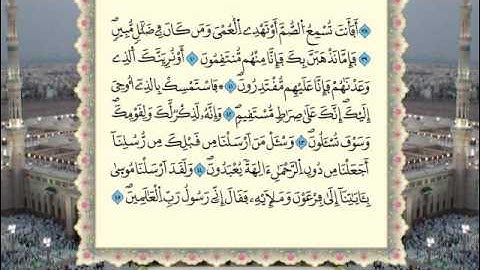 ٣٨ أَفَأَنتَ تُسْمِعُ الصُّمَّ أَوْ تَهْدِي الْعُمْيَ وَمَن كَانَ فِي ضَلَٰلٍ مُّبِينٍ
٣٩ فَإِمَّا نَذْهَبَنَّ بِكَ فَإِنَّا مِنْهُم مُّنتَقِمُونَ ٤٠ أَوْ نُرِيَنَّكَ الَّذِي
وَعَدْنَٰهُمْ فَإِنَّا عَلَيْهِم مُّقْتَدِرُونَ ٤١ فَاسْتَمْسِكْ بِالَّذِي أُوحِيَ
إِلَيْكَ إِنَّكَ عَلَىٰ صِرَٰطٍ مُّسْتَقِيمٍ ٤٢ وَإِنَّهُ لَذِكْرٌ لَّكَ وَلِقَوْمِكَ
وَسَوْفَ تُسْـَٔلُونَ ٤٣ وَسْـَٔلْ مَنْ أَرْسَلْنَا مِن قَبْلِكَ مِن رُّسُلِنَا
أَجَعَلْنَا مِن دُونِ الرَّحْمَٰنِ ءَالِهَةً يُعْبَدُونَ ٤٤ وَلَقَدْ أَرْسَلْنَا مُوسَىٰ
بِـَٔايَٰتِنَا إِلَىٰ فِرْعَوْنَ وَمَلَإِيْهِ فَقَالَ إِنِّي رَسُولُ رَبِّ الْعَٰلَمِينَ ٤٥